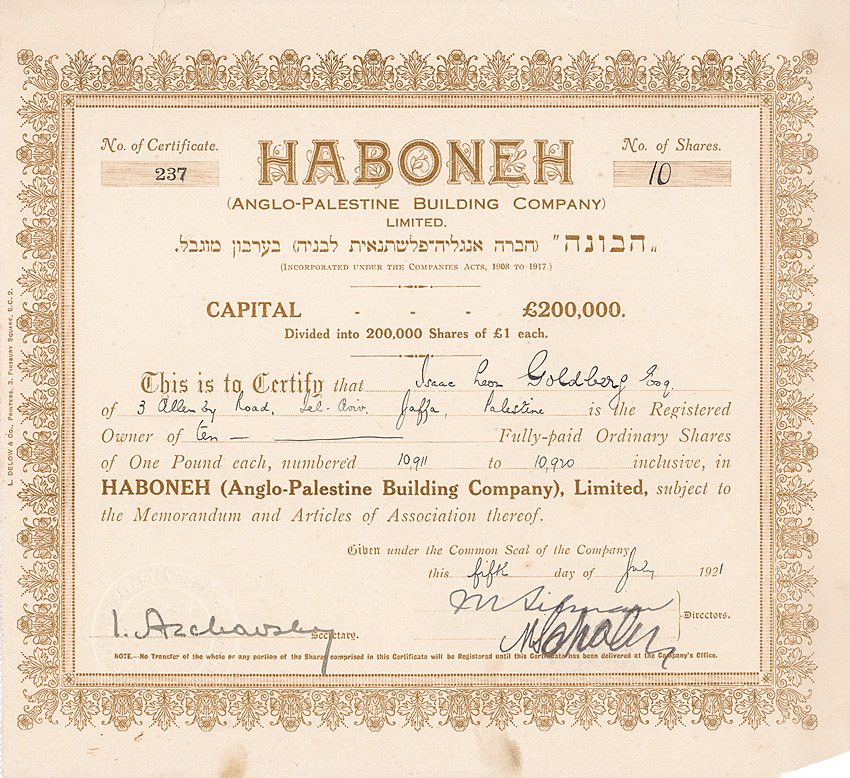 No. of Certificate.
237
HABONEH
No. of Shares.
10
(ANGLO-PALESTINE BUILDING COMPANY)
LIMITED.
„הבונה" (חברה אנגליה־פלשתנאית לבניה) בערבון מוגבל.
(INCORPORATED UNDER THE COMPANIES ACTS, 1908 TO 1917.)
CAPITAL - - - £200,000.
Divided into 200,000 Shares of £1 each.
This is to Certify that Isaac Leon Goldberg Esq.
of 3 Allenby Road, Tel-Aviv, Jaffa, Palestine is the Registered
Owner of ten — Fully-paid Ordinary Shares
of One Pound each, numbered 10,911 to 10,920 inclusive, in
HABONEH (Anglo-Palestine Building Company), Limited, subject to
the Memorandum and Articles of Association thereof.
Given under the Common Seal of the Company
this fifth day of July 1921
Directors.
Secretary.
NOTE.—No Transfer of the whole or any portion of the Shares comprised in this Certificate will be Registered until this Certificate has been delivered at the Company's Office.
L. DELOW & CO., PRINTERS, 3, FINSBURY SQUARE, E.C. 2.